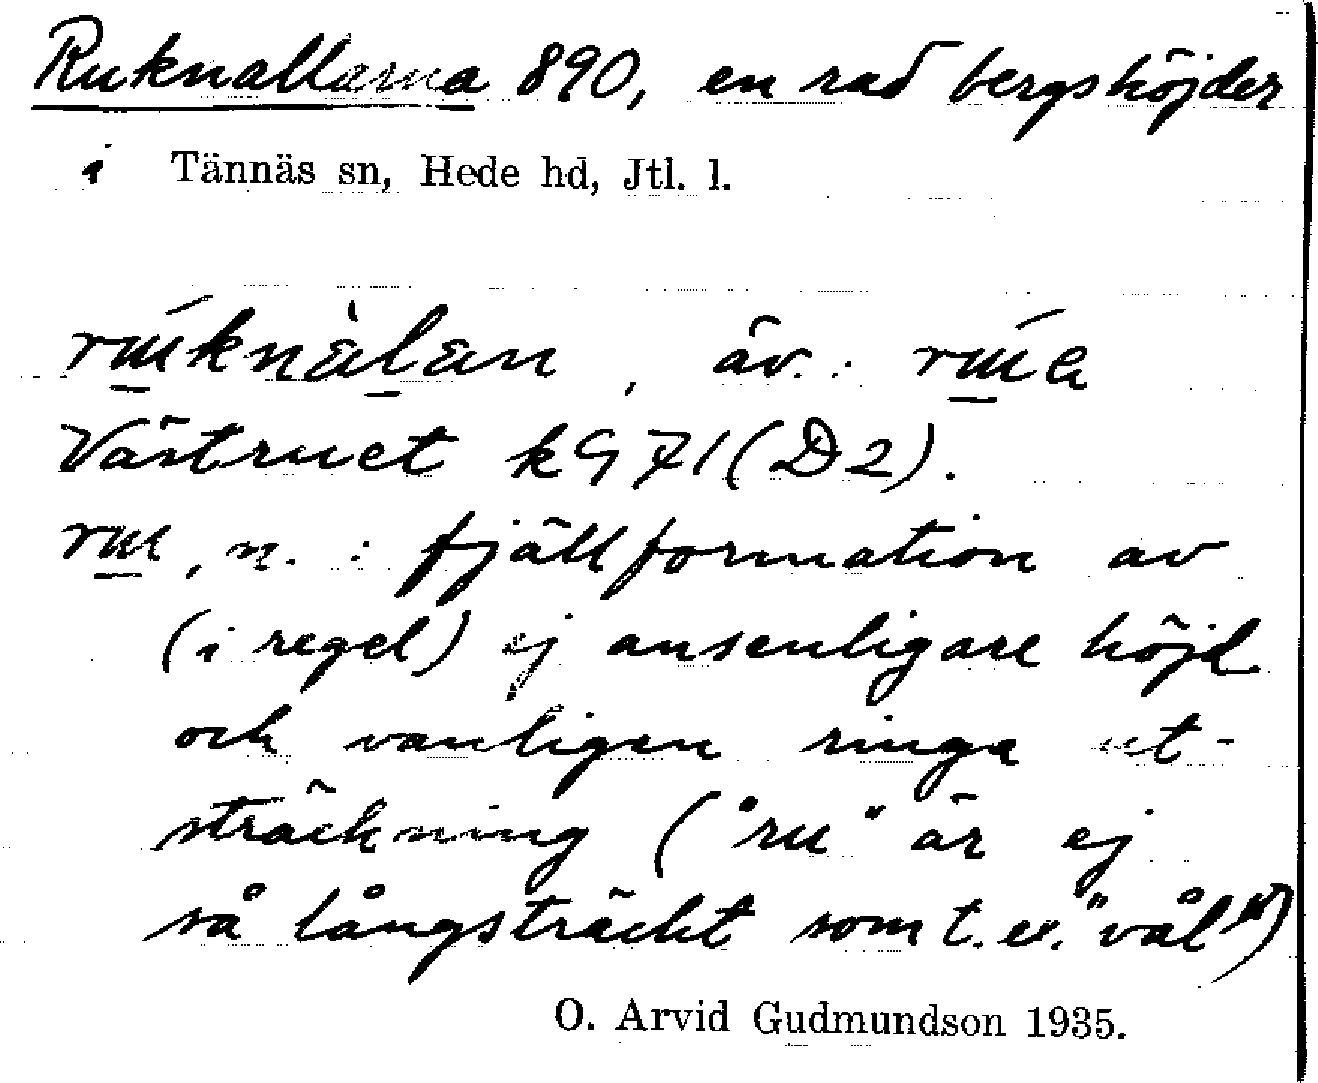 Ruknallarna 890, en rad bergshöjder
i Tännäs sn, Hede hd, Jtl. l.
äv.:
Västruet k G 71 (D2).
n.: fjällformation av
(i regel) ej ansenligare höjd
och vanligen ringa ut-
sträckning ("ru" är ej
så långsträckt som t. ex. "vål")
O. Arvid Gudmundson 1935.